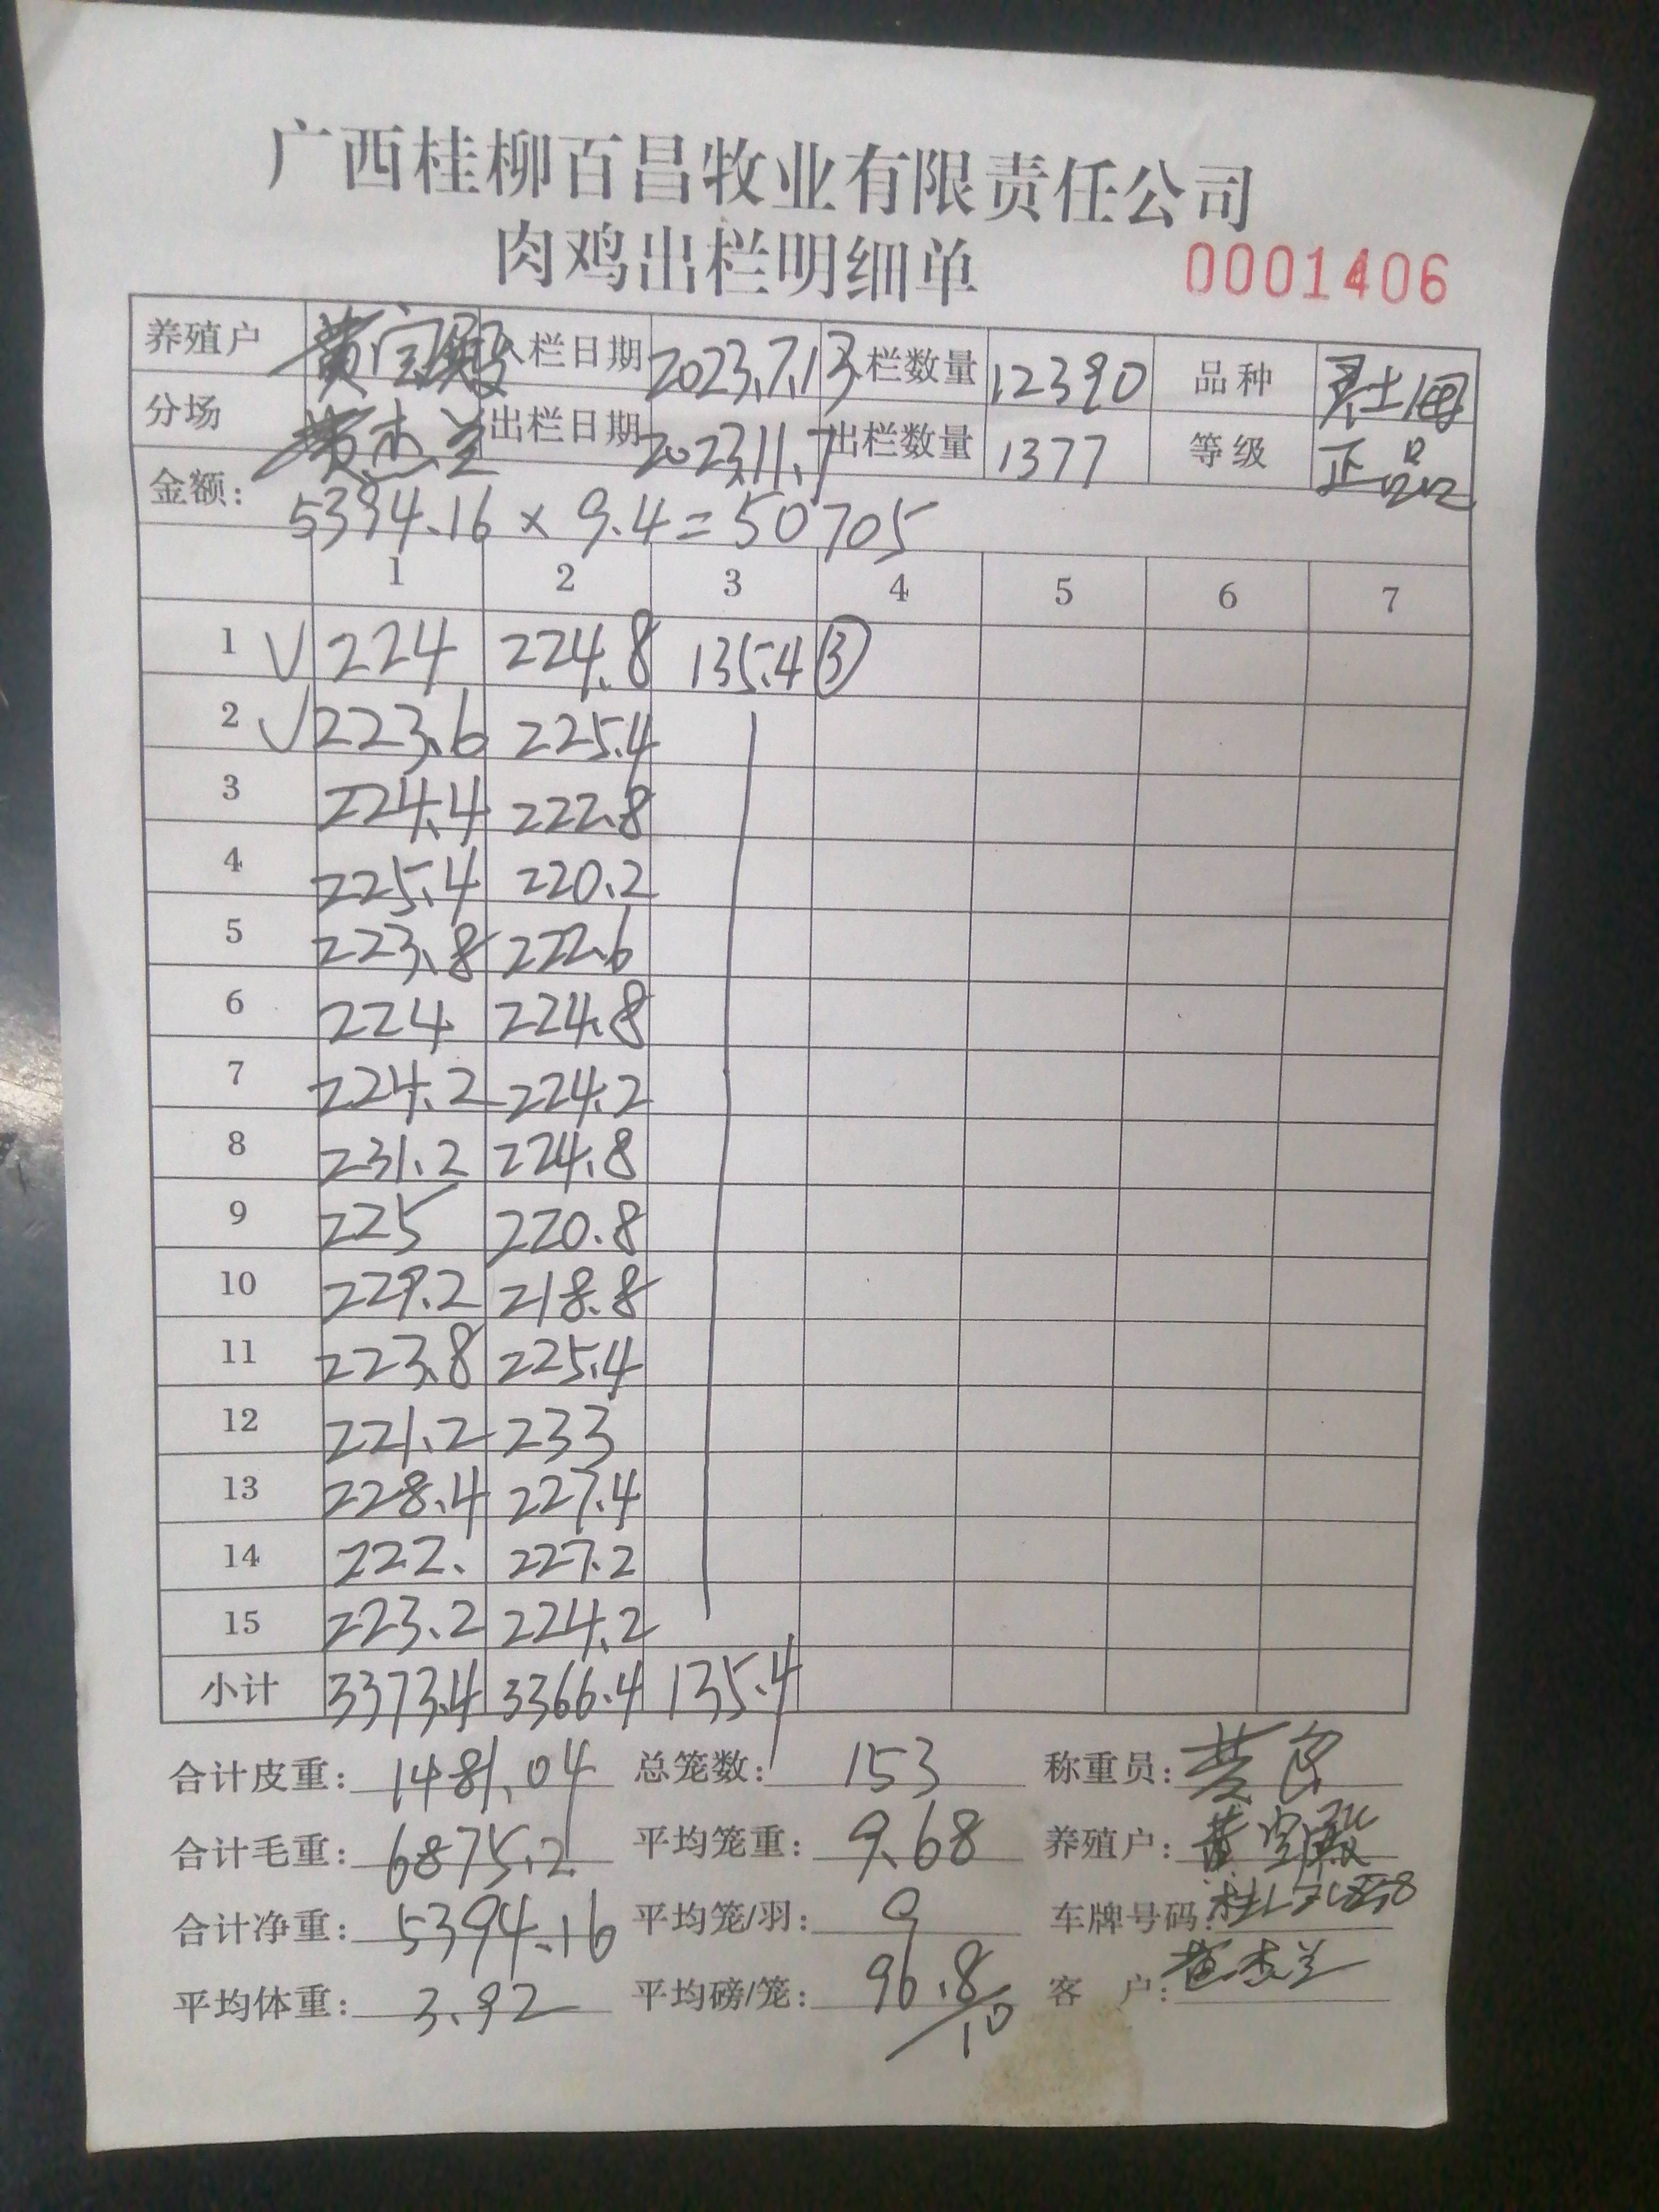 广西桂柳百昌牧业有限责任公司
肉鸡出栏明细单 0001406
养殖户 黄宝殿 入栏日期 2023.7.13 栏数量 12390 品种 灵土
分场 黄杰兰 出栏日期 2023.11.7 出栏数量 1377 等级 正品
金额: 5394.16 × 9.4 = 50705
1 2 3 4 5 6 7
1 √ 224 224.8 135.4 ③
2 √ 223.6 225.4
3 224.4 222.8
4 225.4 220.2
5 223.8 222.6
6 224 224.8
7 224.2 224.2
8 231.2 224.8
9 225 220.8
10 229.2 218.8
11 223.8 225.4
12 221.2 233
13 228.4 227.4
14 222. 227.2
15 223.2 224.2
小计 3373.4 3366.4 135.4
合计皮重: 1481.04 总笼数: 153 称重员: 黄
合计毛重: 6875.2 平均笼重: 9.68 养殖户: 黄宝殿
合计净重: 5394.16 平均笼/羽: 9 车牌号码:
平均体重: 3.92 平均磅/笼: 96.8/10 客 户: 黄杰兰